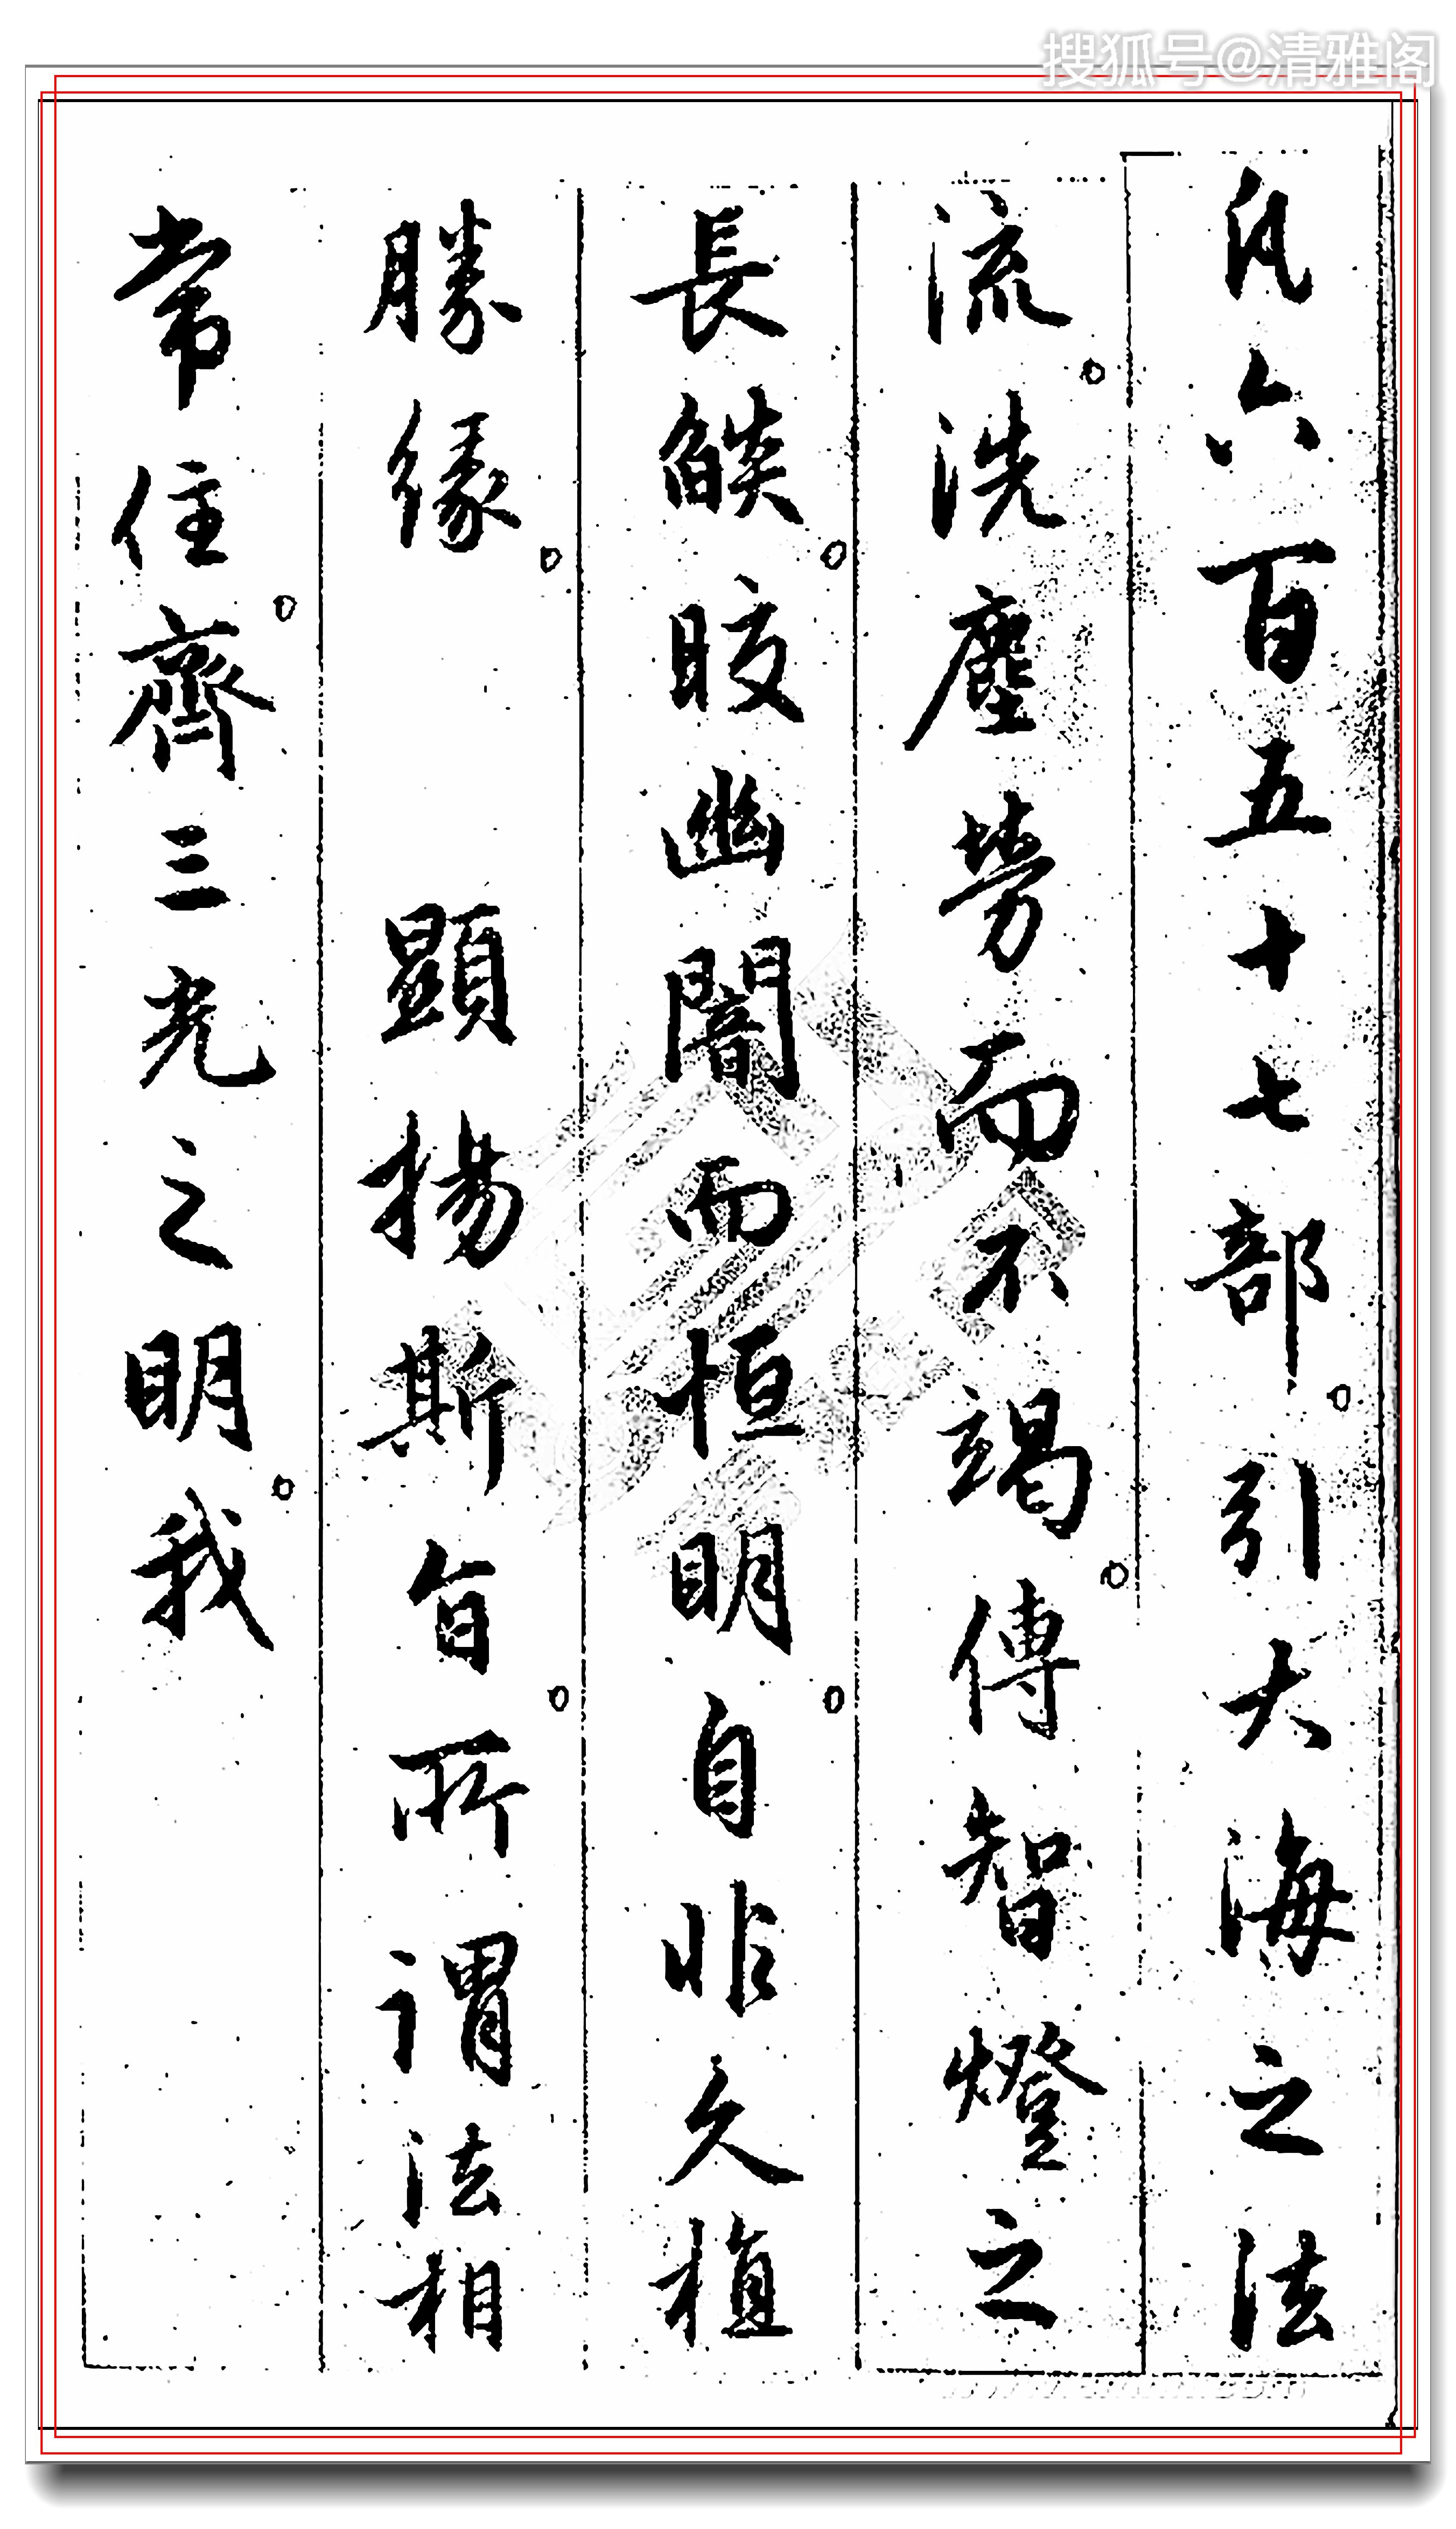 搜狐号@清雅阁
凡六百五十七部。引大海之法
流。洗塵勞而不竭。傳智燈之
長燄。皎幽闇而恒明。自非久植
勝緣。顯揚斯旨。所謂法相
常住。齊三光之明。我